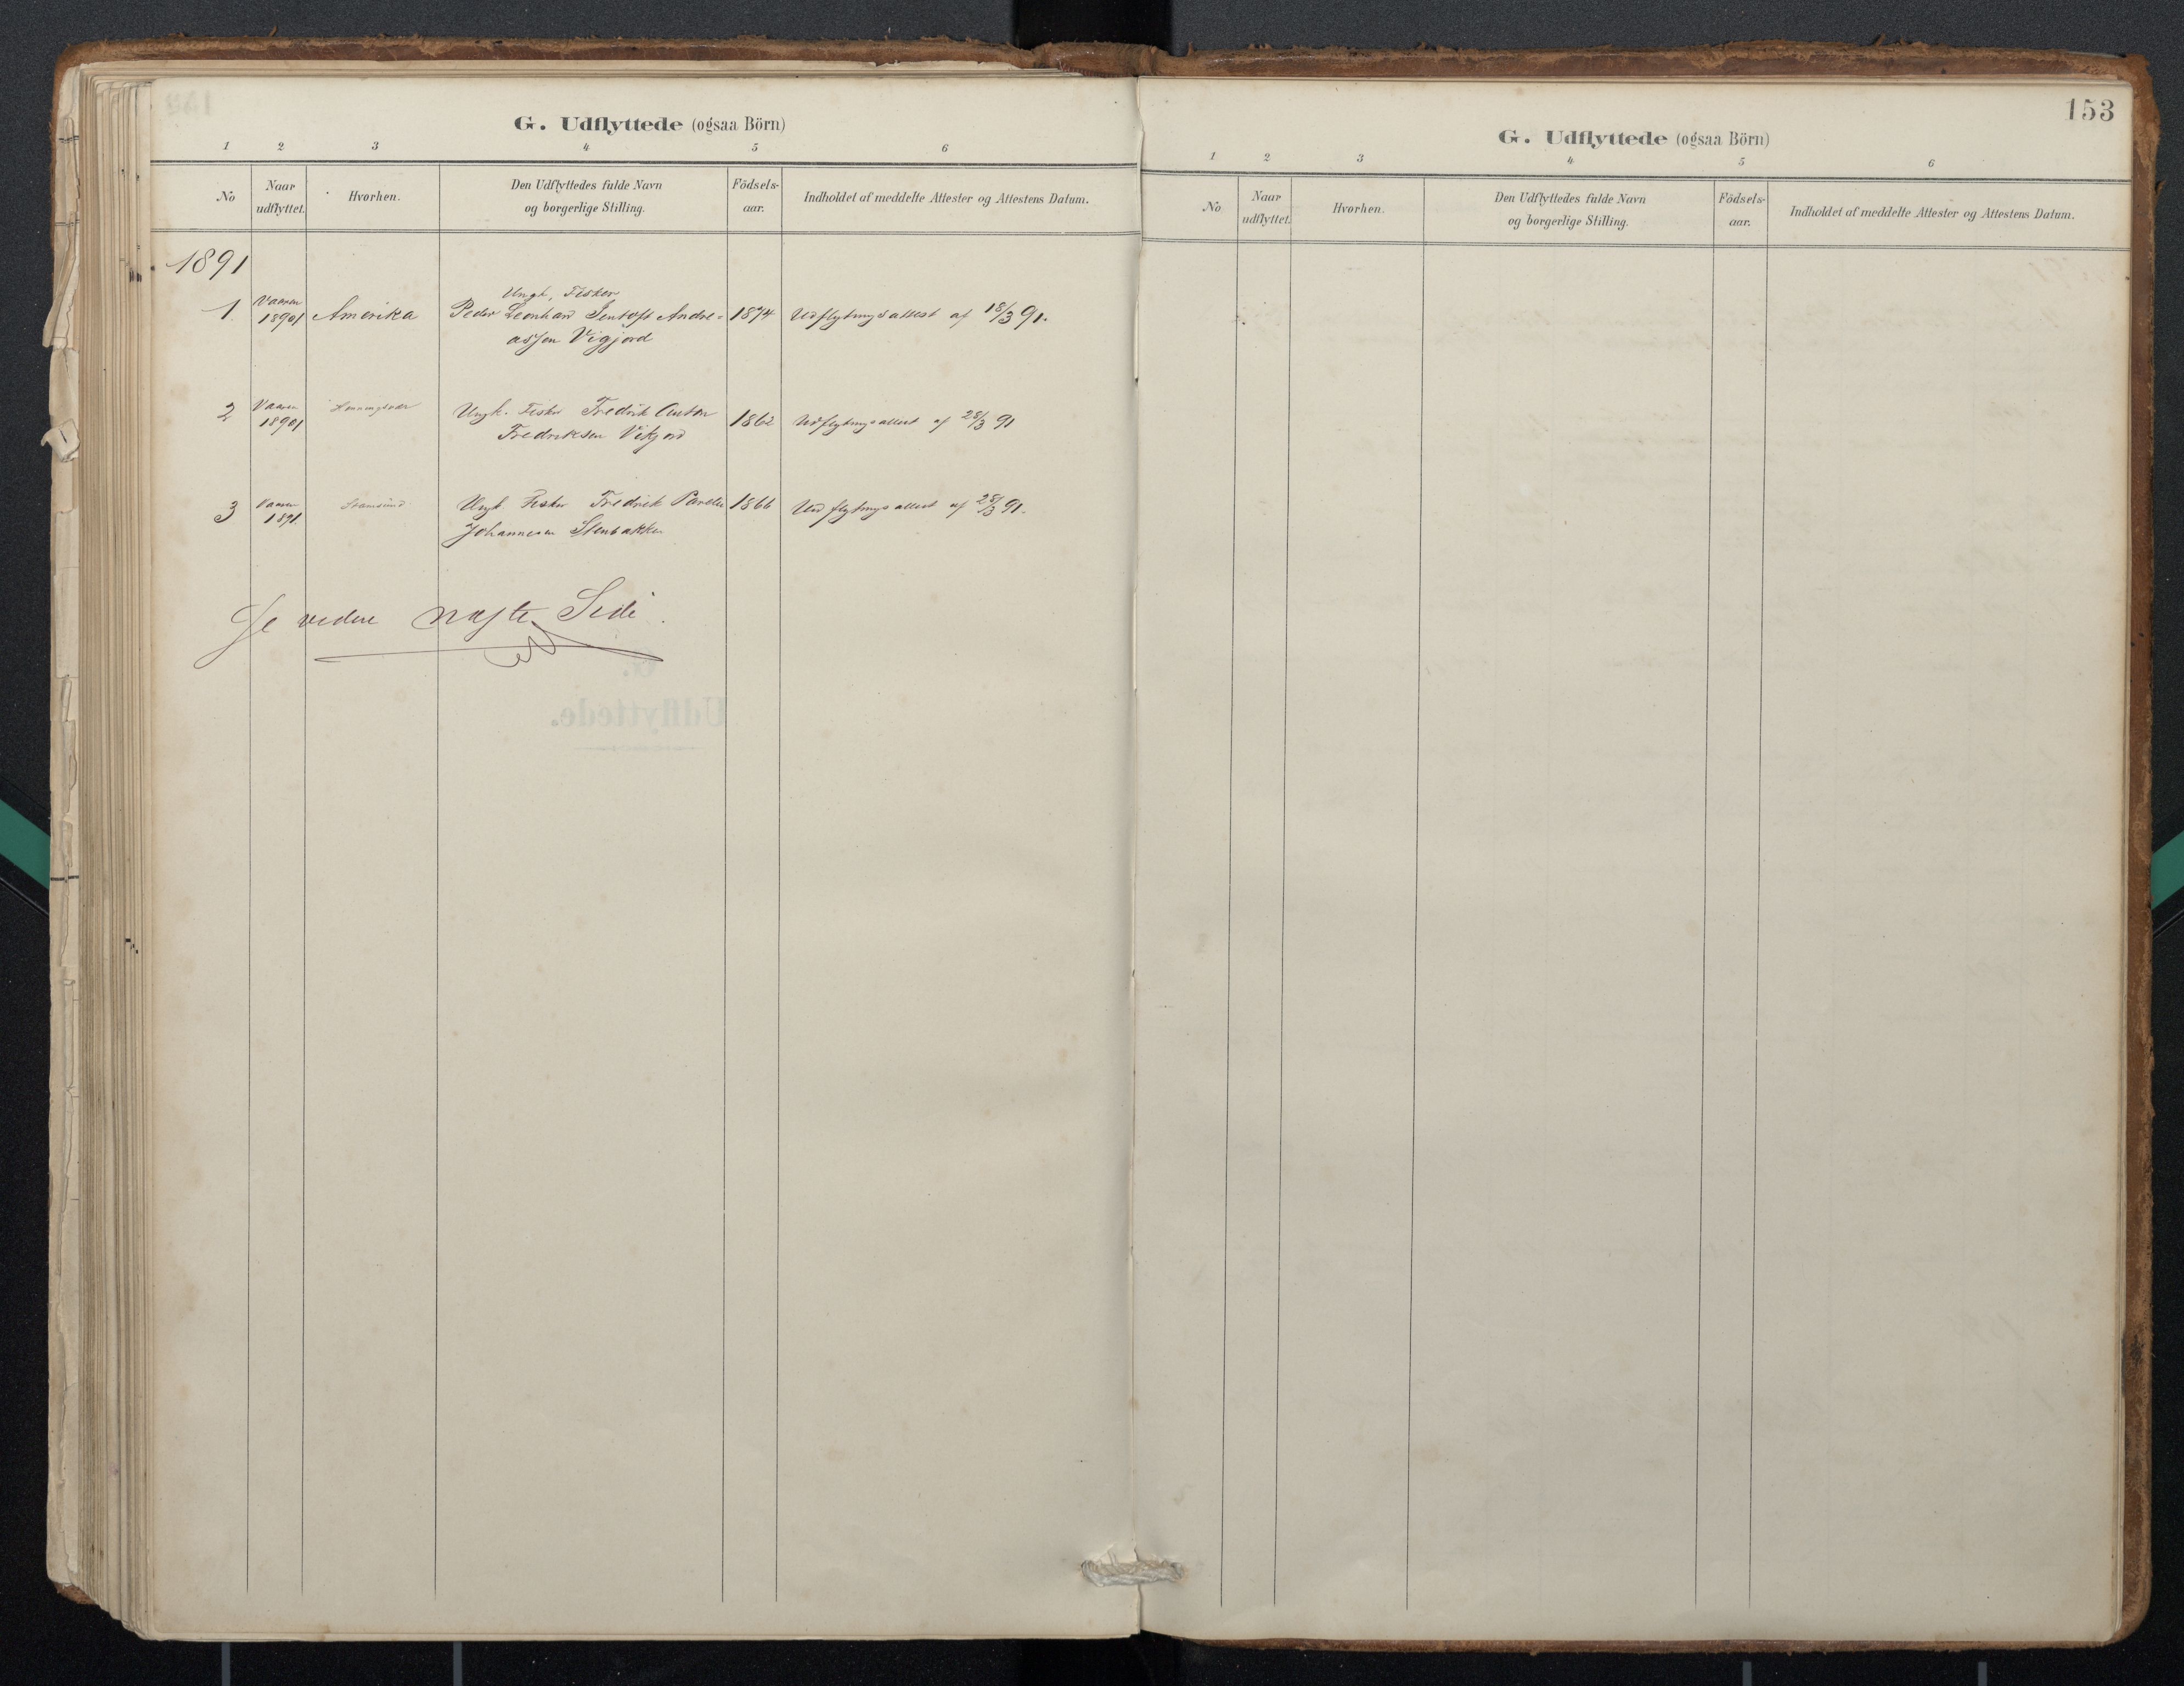 G. Udflyttede (ogsaa Börn)
1 2 3 4 5 6
No Naar udflyttet. Hvorhen. Den Udflyttedes fulde Navn og borgerlige Stilling. Födsels-aar. Indholdet af meddelte Attester og Attestens Datum.
1891
Ungk. Fisker
1. Vaaren 1891 Amerika Peder Leonhard Jentoft Andre= 1874 Udflytningsattest af 18/3 91.
assen Vigjord
2 Vaaren 1891 Henningsvær Ungk. Fisker Fredrik Anton 1862 Udflytningsattest af 28/3 91
Fredriksen Vikjord
3 Vaaren 1891 Stamsund Ungk. Fisker Fredrik 1866 Udflytningsattest af 28/3 91.
Johannesen Stenbakken
Se videre næste Side.
153
G. Udflyttede (ogsaa Börn)
1 2 3 4 5 6
No Naar udflyttet. Hvorhen. Den Udflyttedes fulde Navn og borgerlige Stilling. Födsels-aar. Indholdet af meddelte Attester og Attestens Datum.